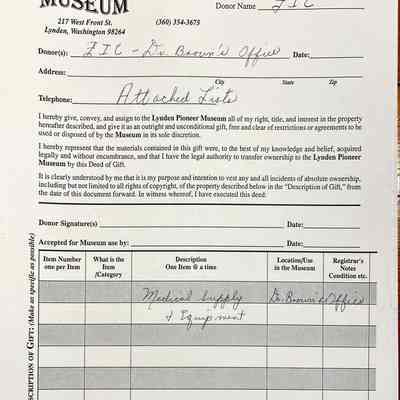 MUSEUM
217 West Front St. (360) 354-3675
Lynden, Washington 98264
Donor Name FIC
Donor(s): FIC - Dr. Brown's Office Date:
Address:
City State Zip
Telephone: Attached Lists
I hereby give, convey, and assign to the Lynden Pioneer Museum all of my right, title, and interest in the property
hereafter described, and give it as an outright and unconditional gift, free and clear of restrictions or agreements to be
used or disposed of by the Museum in its sole discretion.
I hereby represent that the materials contained in this gift were, to the best of my knowledge and belief, acquired
legally and without encumbrance, and that I have the legal authority to transfer ownership to the Lynden Pioneer
Museum by this Deed of Gift.
It is clearly understood by me that it is my purpose and intention to vest any and all incidents of absolute ownership,
including but not limited to all rights of copyright, of the property described below in the "Description of Gift," from
the date of this document forward. In witness whereof, I have executed this deed:
Donor Signature(s) Date:
Accepted for Museum use by: Date:
Item Number one per Item
What is the Item /Category
Description One Item @ a time
Location/Use in the Museum
Registrar's Notes Condition etc.
Medical Supply Dr. Brown's Office
& Equipment
SCRIPTION OF GIFT: (Make as specific as possible)